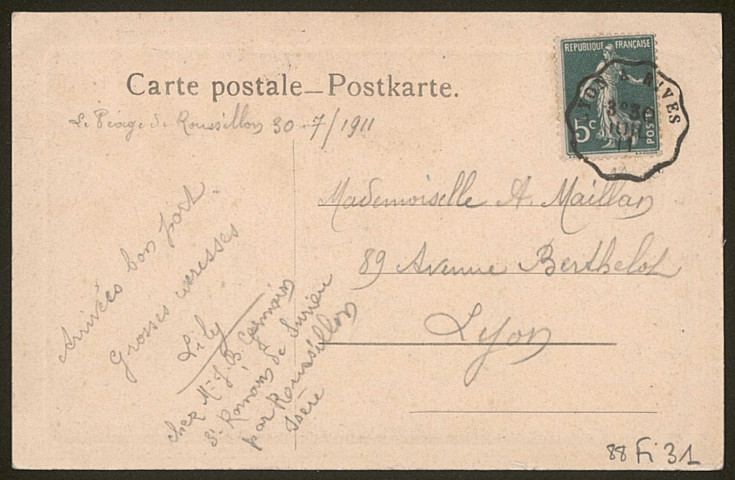 Carte postale_Postkarte.
Le Péage de Roussillon 30-7/1911
REPUBLIQUE FRANÇAISE
5c
POSTES
LYON A RIVES
3E 30
JUIL
11
Mademoiselle A. Maillan
89 Avenue Berthelot
Lyon
Arrivées bon port.
Grosses caresses
Lily
chez Mr J. B. Germain
St Romain de Surieu
par Roussillon
Isère
88 Fi 31